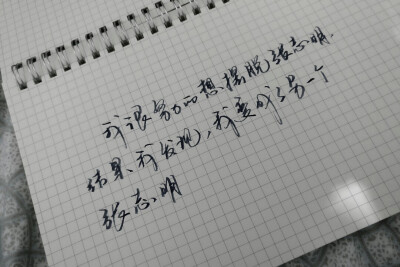 我很努力的想摆脱张志明.
结果,我发现,我变成了另一个
张志明